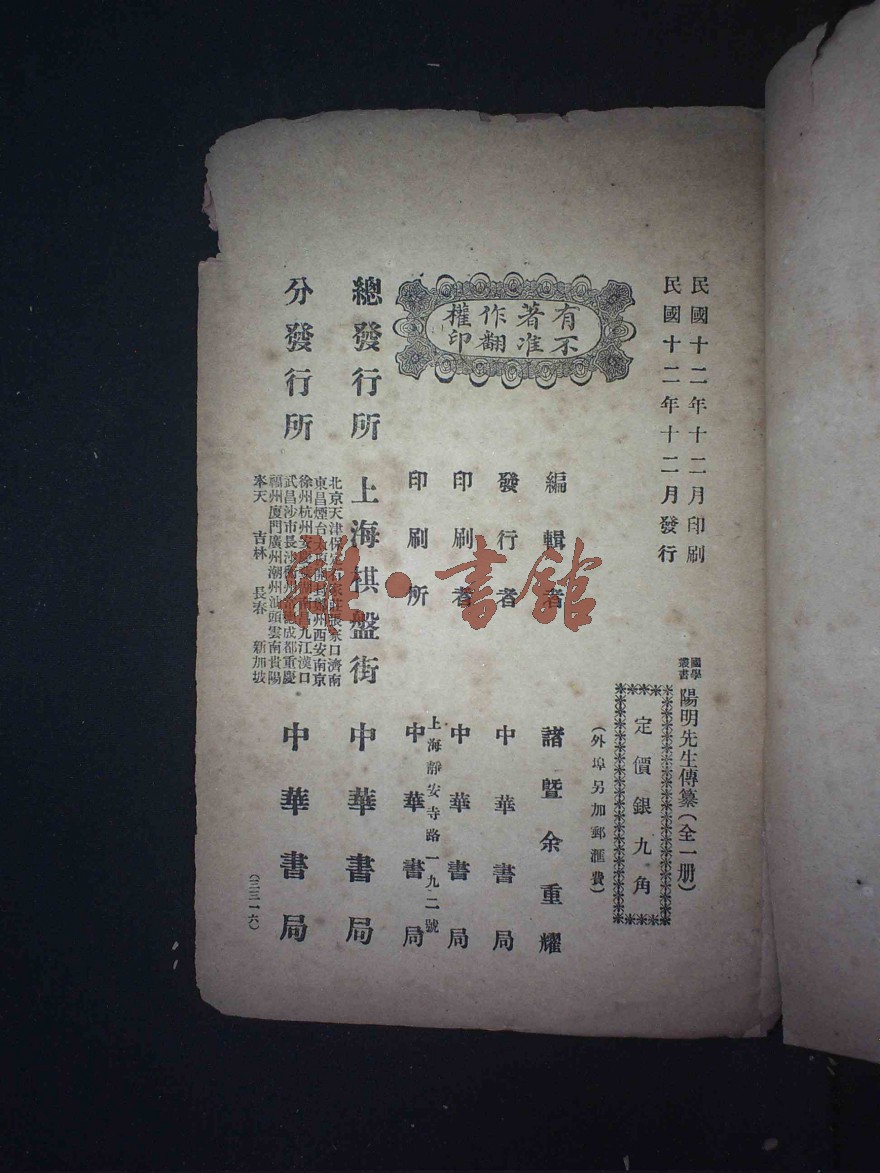 民國十二年十二月印刷
民國十二年十二月發行
國學叢書
陽明先生傳纂(全一册)
定價銀九角
(外埠另加郵滙費)
有不著准作翻權印
編輯者 諸暨余重耀
發行者 中華書局
印刷者 中華書局
上海靜安寺路一九二號
印刷所 中華書局
總發行所 上海棋盤街 中華書局
分發行所 中華書局
北京天津保定石家莊張家口濟南
東昌煙台太原開封鄭州西安南京
徐州杭州安慶蕪湖南昌九江漢口
武昌沙市長沙衡州常德成都重慶
福州廈門廣州潮州汕頭雲南貴陽
奉天 吉林 長春 新加坡
(三三一六)
雜·書館